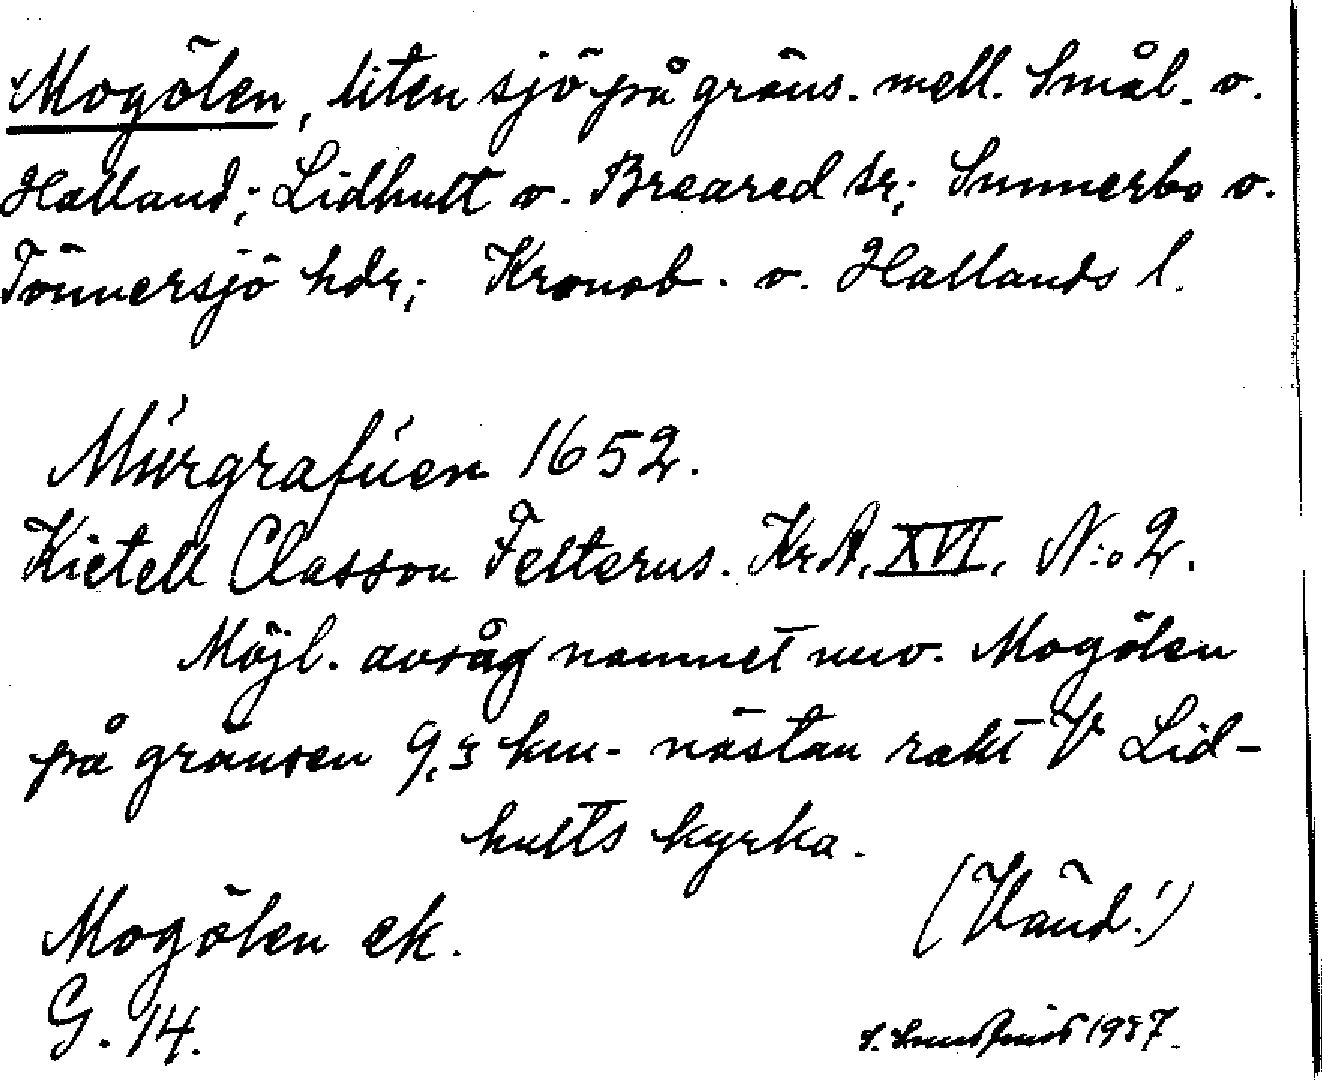 Mogölen, liten sjö på gräns. mell. Smål. o.
Halland; Lidhult o. Breared sr; Sunnerbo o.
Tönnersjö hdr; Kronob. o. Hallands l.
Murgrafuen 1652.
Kietell Classon Felterus. KrA, XVI, N:o 2.
Möjl. avsåg namnet nuv. Mogölen
på gränsen 9,3 km nästan rakt V Lid-
hults kyrka.
Mogölen ek.
(Vänd!)
G. 14.
1937.